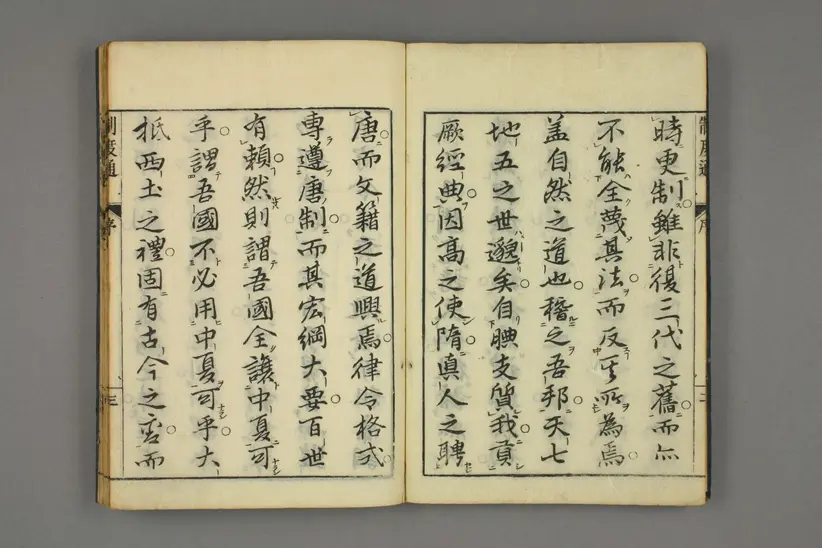 制度通
序
二
時更制雖非復三代之舊而亦
不能全蔑其法而反其所為焉
盖自然之道也稽之吾邦天七
地五之世邈矣自腆支質我貢
厥經典因高之使隋眞人之聘
唐而文籍之道興焉律令格式
專遵唐制而其宏綱大要百世
有頼然則謂吾國全讓中夏可
乎謂吾國不必用中夏可乎大
抵西土之禮固有古今之而
制度通
序
三